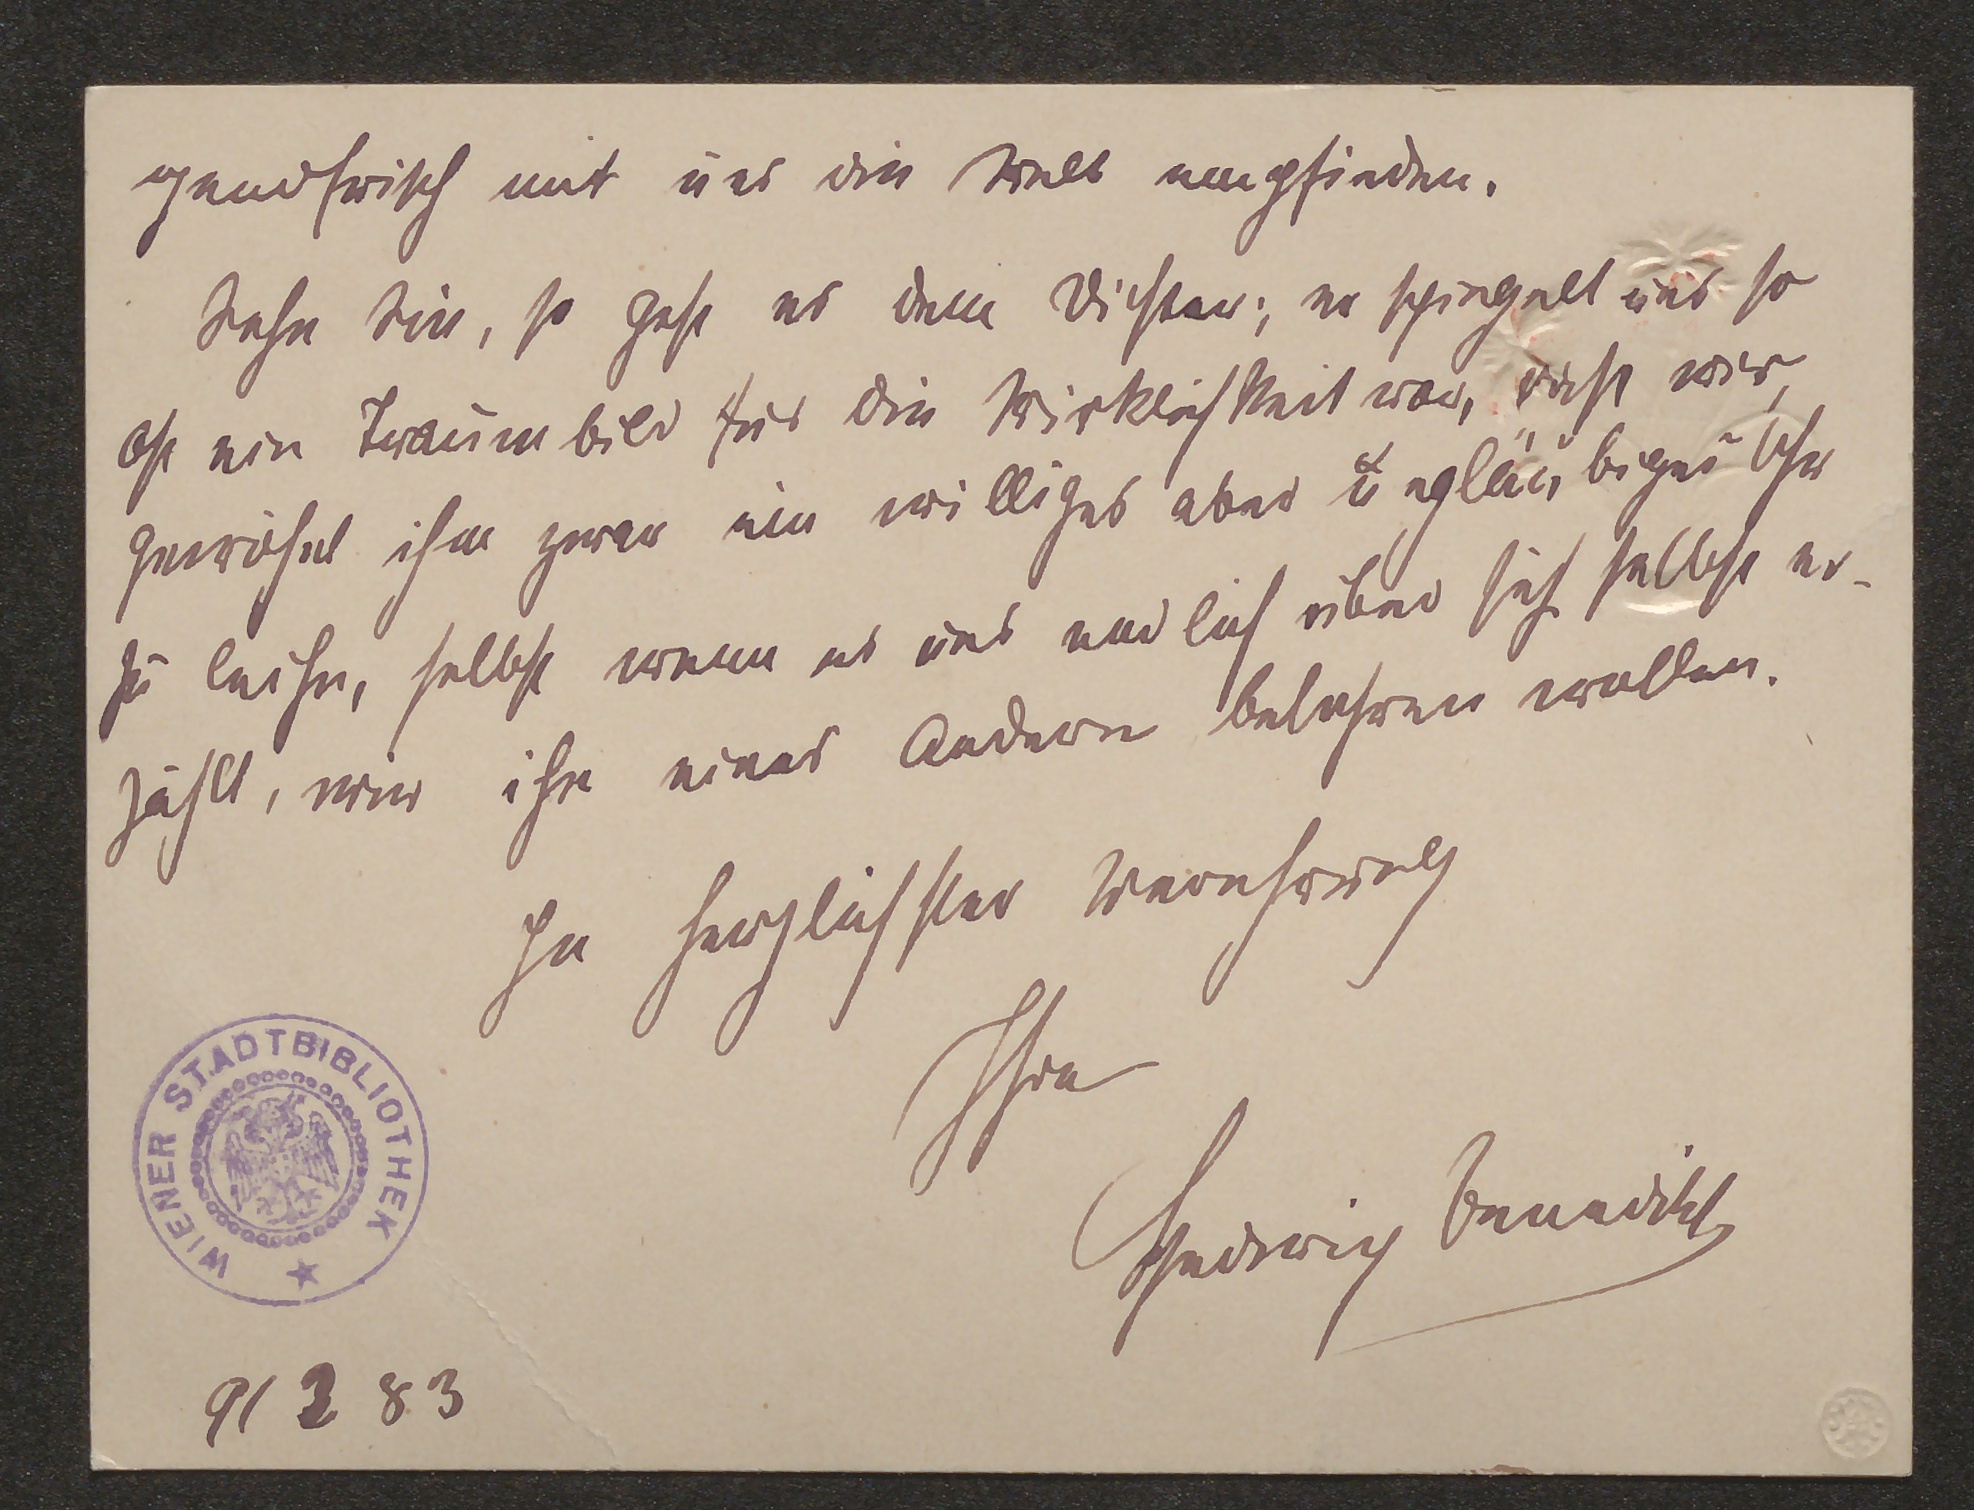 gendfrisch mit uns die Welt empfinden.
Sehn Sie, so geht es dem Dichter; er spiegelt uns so
oft ein Traumbild für die Wirklichkeit vor, daß wir,
gewöhnt ihm zwar ein williges aber ungläubiges Ohr
zu leihn, selbst wenn er uns endlich über sich selbst er-
zählt, wir ihn eines Andern belehren wollen.
In herzlichster Verehrung
Ihre
Hedwig Benedikt
9/2 83
WIENER STADTBIBLIOTHEK